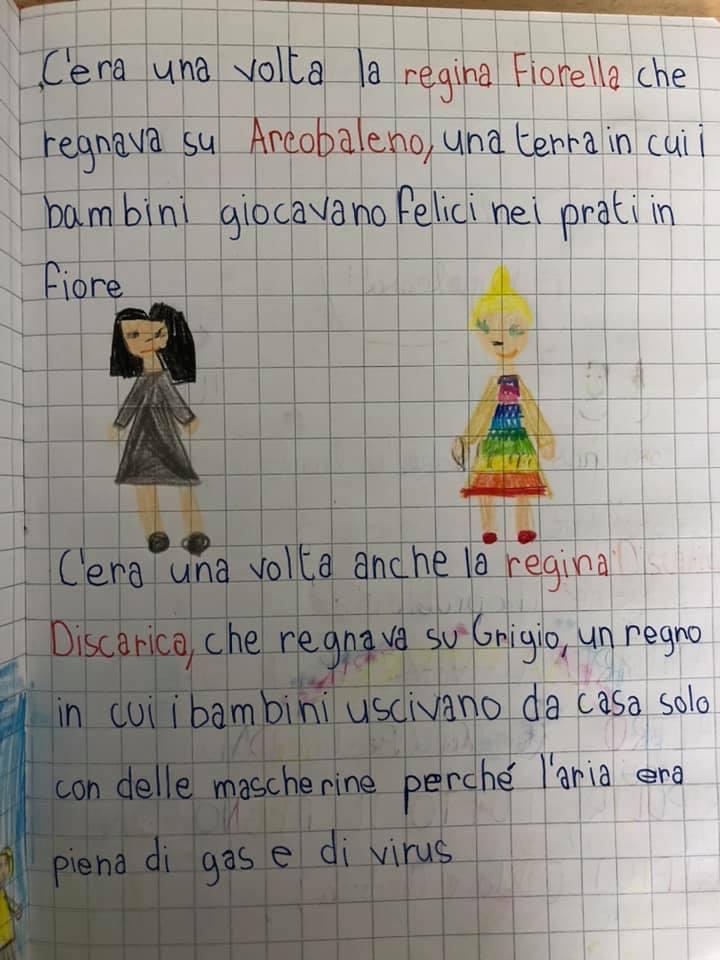 C'era una volta la regina Fiorella che
regnava su Arcobaleno, una terra in cui i
bambini giocavano felici nei prati in
fiore
C'era una volta anche la regina
Discarica, che regnava su Grigio, un regno
in cui i bambini uscivano da casa solo
con delle mascherine perché l'aria era
piena di gas e di virus